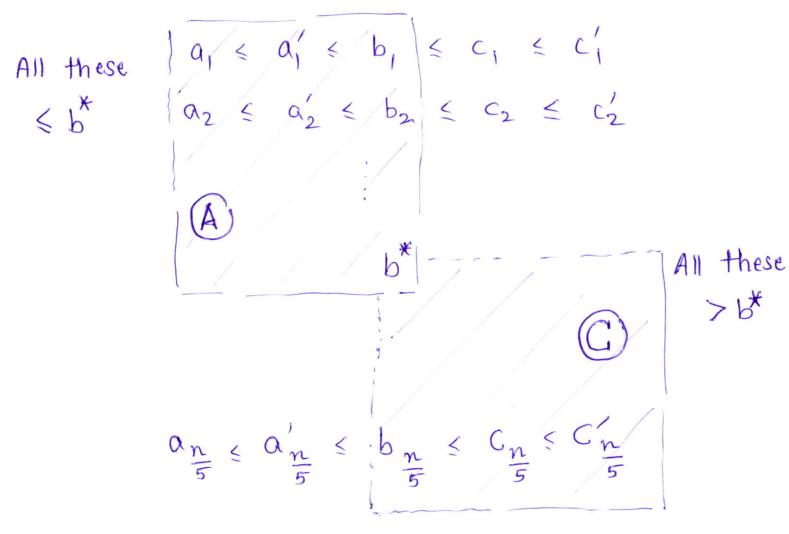 All these
≤ b*
a₁ ≤ a₁′ ≤ b₁ ≤ c₁ ≤ c₁′
a₂ ≤ a₂′ ≤ b₂ ≤ c₂ ≤ c₂′
⋮
A
b*
All these
> b*
C
a_{n/5} ≤ a′_{n/5} ≤ b_{n/5} ≤ c_{n/5} ≤ c′_{n/5}